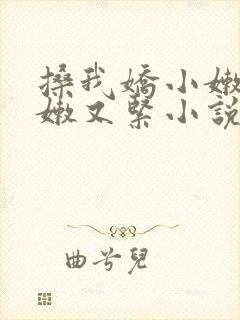 搡我嬌小嫩
嫩又緊小說
曲兮兒